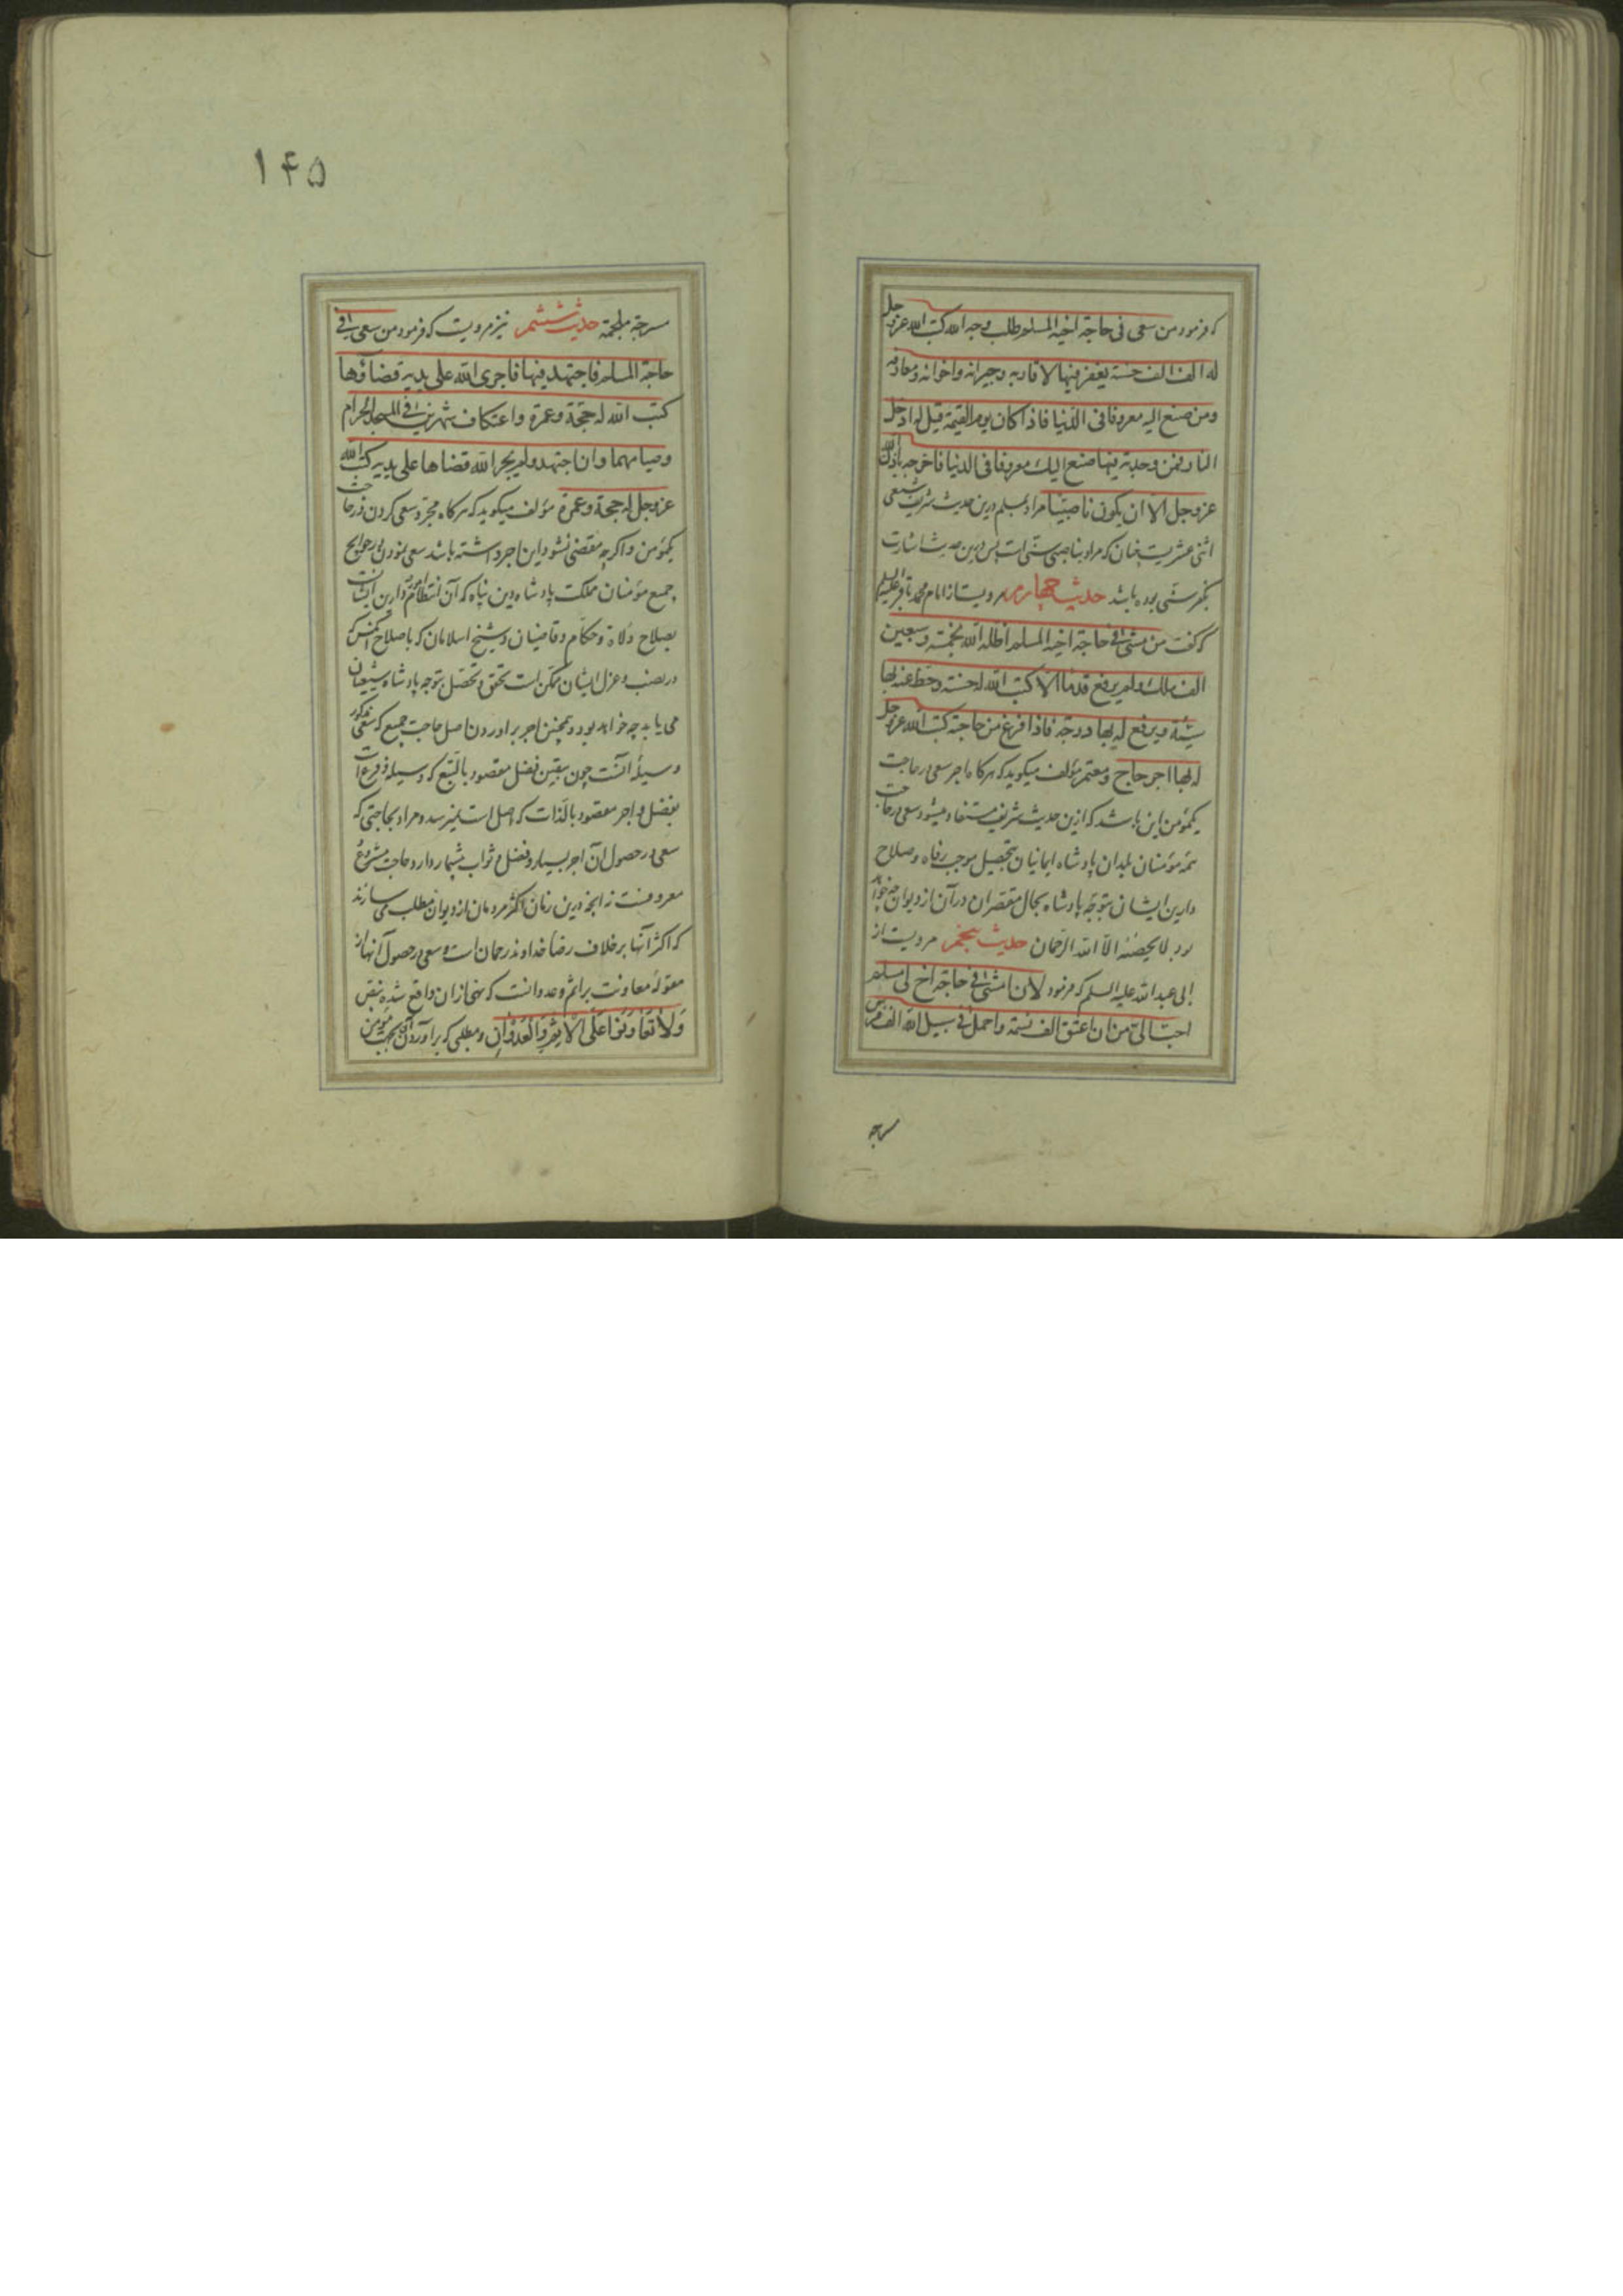 که فرمود من سعی فی حاجة اخیه المسلم و طلب وجه الله کتب الله عزوجل
له الف الف حسنة یغفر فیها لاقاربه وجیرانه واخوانه ومعارفه
ومن صنع الیه معروفا فی الدنیا فاذا کان یوم القیمة قیل له ادخل
النار فمن وجدته فیها صنع الیک معروفا فی الدنیا فاخرجه باذن الله
عزوجل الا ان یکون ناصبیا مراد بمسلم درین حدیث شریف شیعی
اثنی عشریت چنان که مراد بناصبی سنی است پس درین حدیث اشارت
بکفر سنی بوده باشد حدیث چهارم مرویست از امام محمد باقر علیه السلم
که گفت من مشی فی حاجة اخیه المسلم اظله الله بخمسة وسبعین
الف ملک ولم یرفع قدما الا کتب الله له حسنة وحط عنه بها
سیئة ویرفع له بها درجة فاذا فرغ من حاجته کتب الله عزوجل
له بها اجر حاج ومعتمر مؤلف میکوید که هرکاه اجر سعی در حاجت
یکمؤمن این باشد که ازین حدیث شریف مستفاد میشود سعی در حاجت
همه مؤمنان بلدان پادشاه ایمانیان بتحصیل موجب رفاه وصلاح
دارین ایشان بتوجه پادشاه بحال مقتصران در آن از دیوان چه خواهد
بود لا یحصنه الا الله الرحمان حدیث پنجم مرویست از
ابی عبد الله علیه السلم که فرمود لان امشی فی حاجة اخ لی مسلم
احب الی من ان اعتق الف نسمة واحمل فی سبیل الله الف فرس
مسرجه
۱۴۵
مسرجة ملجمة حدیث ششم نیز مرویست که فرمود من سعی فی
حاجة المسلم فاجتهد فیها فاجری الله علی یدیه قضاؤها
کتب الله له حجة وعمرة واعتکاف شهرین فی المسجد الحرام
وصیامهما وان اجتهد ولم یجر الله قضاها علی یدیه کتب الله
عزوجل له حجة وعمرة مؤلف میکوید که هرکاه مجرد سعی کردن در حاجت
یکمؤمن واکرچه مقتضی نشود این اجر داشته باشد سعی نمودن در حوایج
جمیع مؤمنان مملکت پادشاه دین پناه که آن انتظام امور دارین ایشانست
بصلاح ولاة وحکام وقاضیان وشیخ اسلامان که باصلاح آنکس که
در نصب وعزل ایشان ممکن است تحقق وتحصل بتوجه پادشاه شیعیان
می یابد چه خواهد بود وهمچنین اجر براوردن اصل حاجت جمیع که سعی مذکور
وسیلهٔ آنست چون بیقین فضل مقصود بالتبع که وسیله وفرع است
بفضل واجر مقصود بالذات که اصل است نمیرسد ومراد بحاجتی که
سعی در حصول آن اجر بسیار وفضل وثواب بیشمار دارد حاجت مشروع
معروفست نه آنچه درین زمان اکثر مردمان از دیوان مطلب می سازند
که اکثر آنها برخلاف رضاء خداوند رحمان است وسعی در حصول آنها از
مقولهٔ معاونت بر اثم وعدوانست که نهی از ان واقع شده بنص
وَلاٰ تَعٰاوَنُوا عَلَی الْاِثْمِ وَالْعُدْوٰانِ ومطلبی که براوردن آن بجهت مؤمن